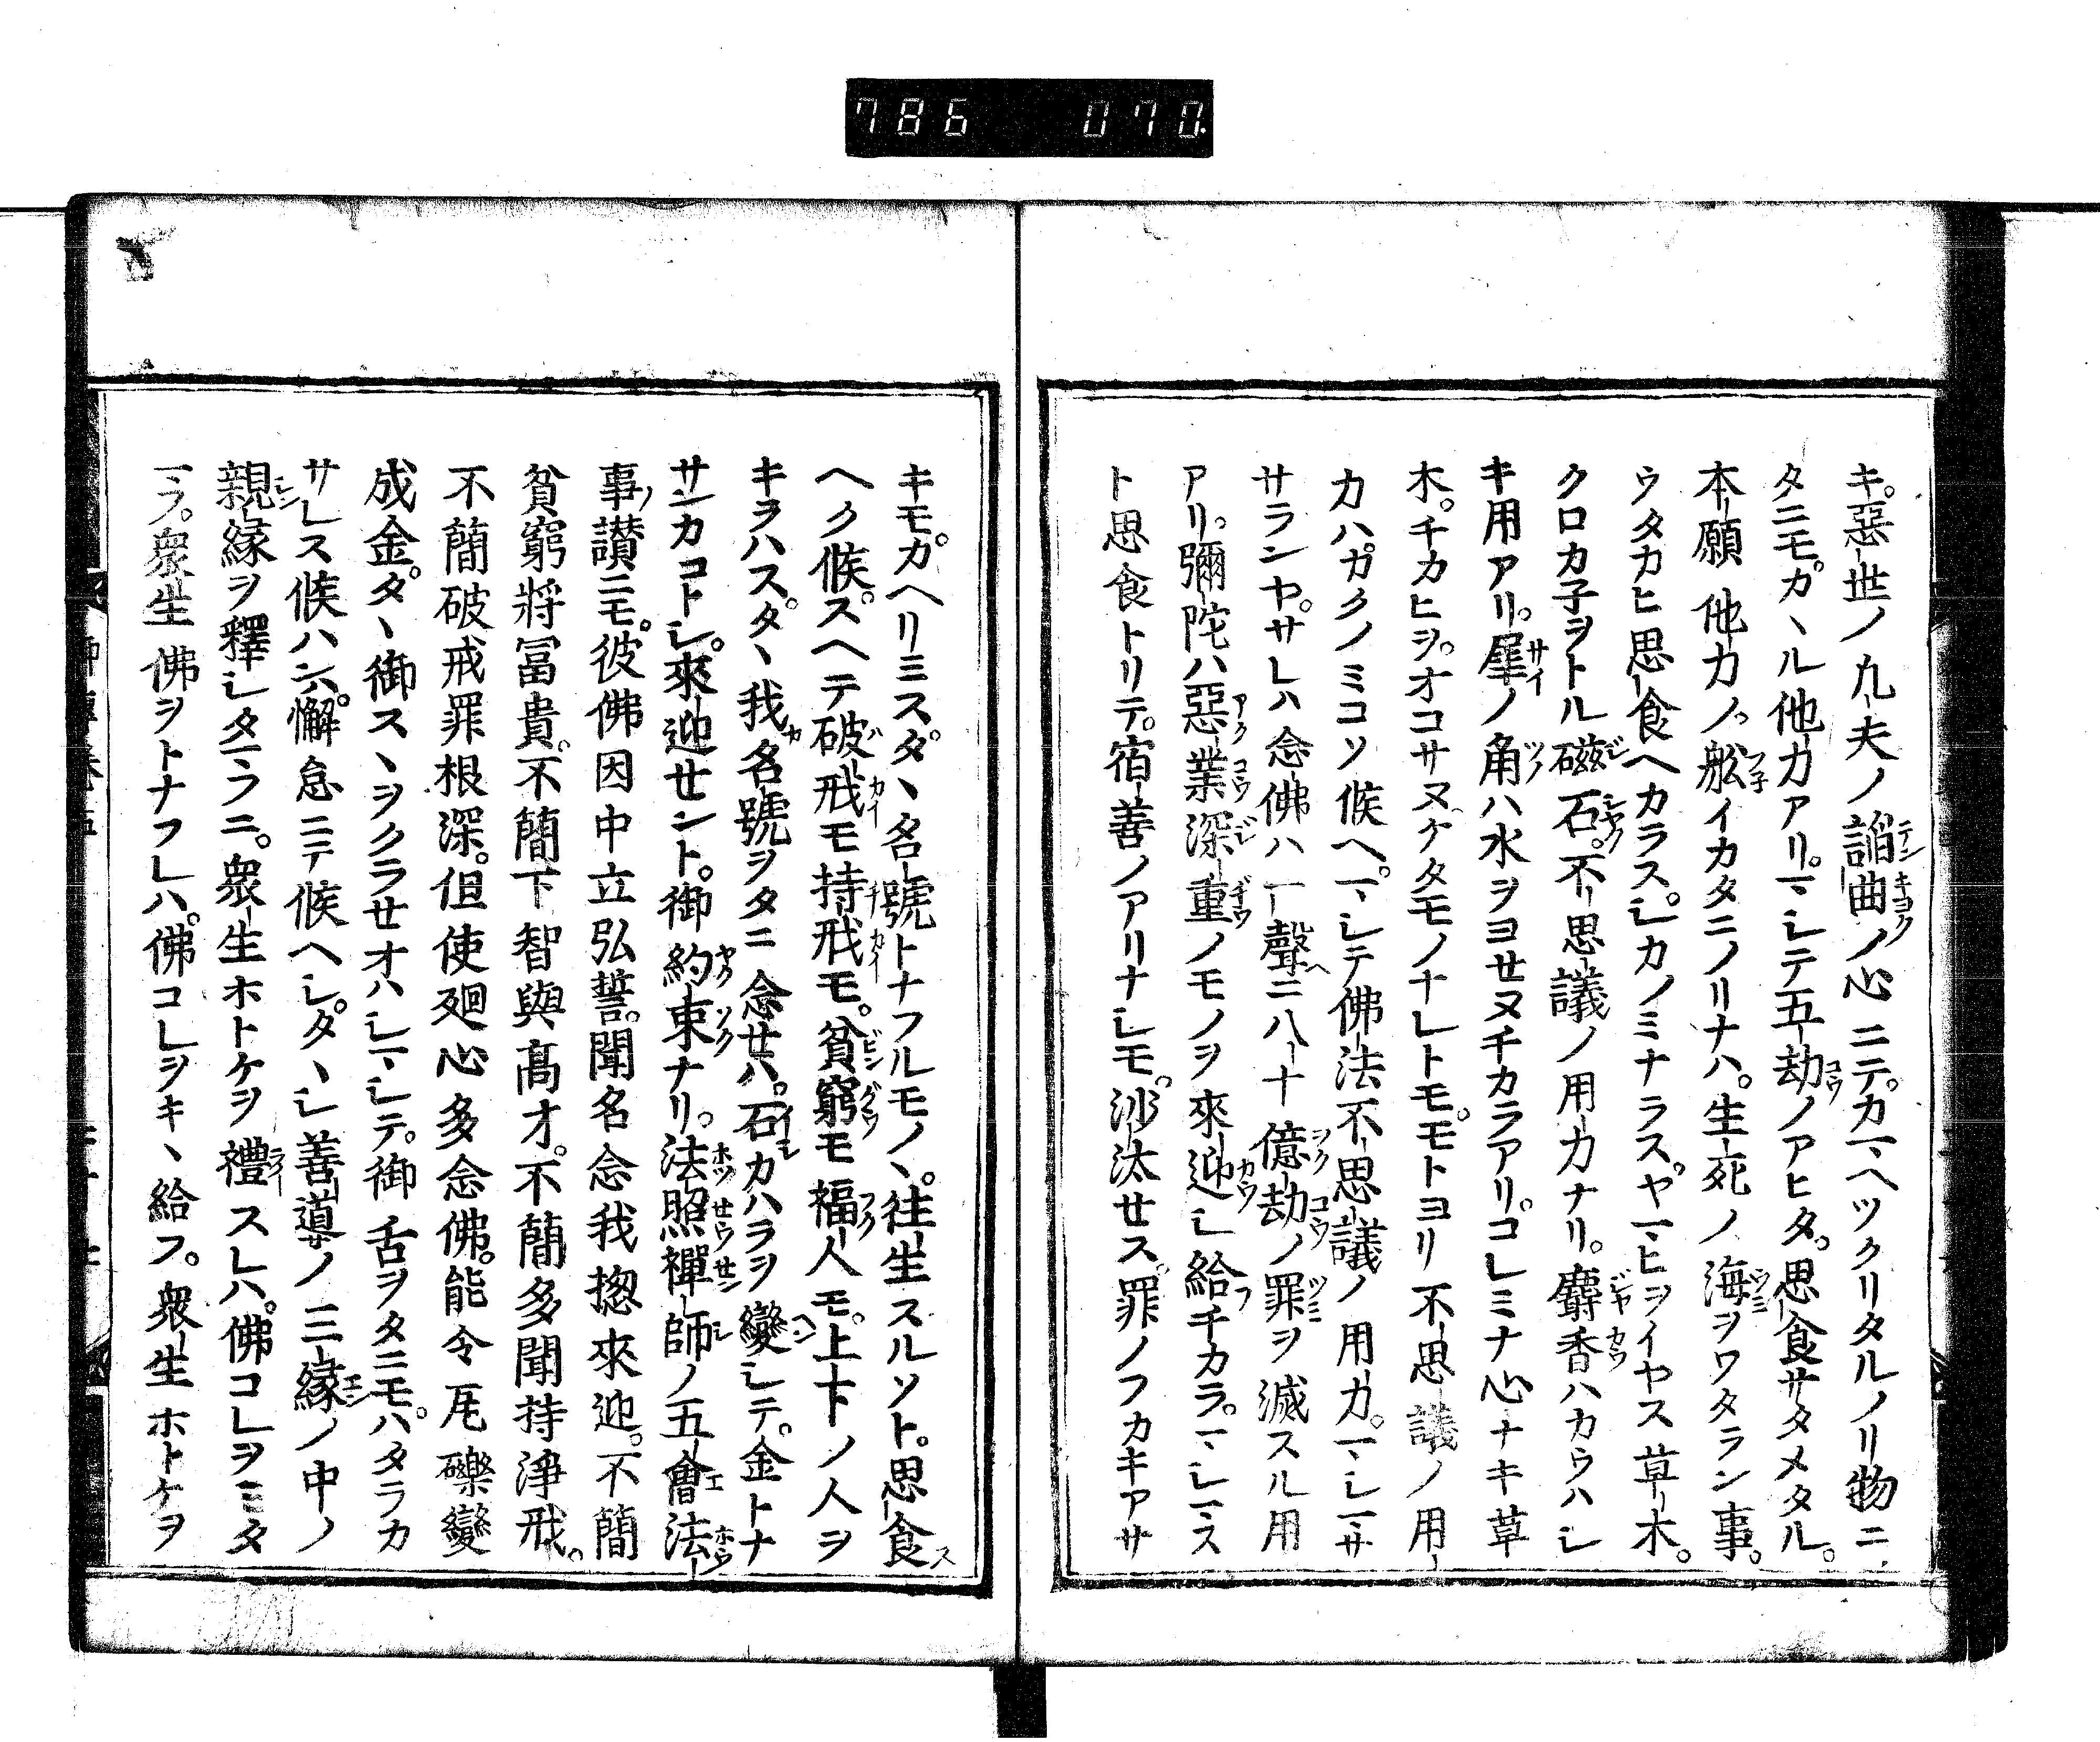 786 070
キ。惡世ノ凡夫ノ諂曲ノ心ニテ。カマヘツクリタルノリ物ニ
タニモ。カヽル他力アリ。マシテ五劫ノアヒタ。思食サタメタル。
本願他力ノ。舩イカタニノリナハ。生死ノ海ヲワタラン事。
ウタカヒ思食ヘカラス。シカノミナラス。ヤマヒヲイヤス草木。
クロカ子ヲトル磁石。不思議ノ用力ナリ。麝香ハカウハシ
キ用アリ。犀ノ角ハ水ヲヨセヌチカラアリ。コレミナ心ナキ草
木。チカヒヲ。オコサヌケタモノナレトモ。モトヨリ不思議ノ用
カハ。カクノミコソ候ヘ。マシテ佛法不思議ノ用力。マシマサ
サランヤ。サレハ念佛ハ一聲ニ八十億劫ノ罪ヲ滅スル用
アリ。彌陀ハ惡業深重ノモノヲ來迎シ給チカラ。マシマス
ト思食トリテ。宿善ノアリナシモ。沙汰セス。罪ノフカキアサ
キモ。カヘリミス。タヽ名號トナフルモノヽ。往生スルソト。思食
ヘク候。スヘテ破戒モ持戒モ。貧窮モ福人モ。上下ノ人ヲ
キラハス。タヽ我名號ヲタニ念セハ。石カハラヲ變シテ。金トナ
サンカコトシ。來迎セント。御約束ナリ。法照禪師ノ五會法
事讃ニモ。彼佛因中立弘誓。聞名念我揔來迎。不簡
貧窮將冨貴。不簡下智與髙才。不簡多聞持淨戒。
不簡破戒罪根深。但使廻心多念佛。能令瓦礫變
成金。タヽ御スヽヲクラセオハシマシテ。御舌ヲタニモ。ハタラカ
サレス候ハン。懈怠ニテ候ヘシ。タヽシ善導ノ三縁ノ中ノ
親縁ヲ釋シタマフニ。衆生ホトケヲ禮スレハ。佛コレヲミタ
マフ。衆生佛ヲトナフレハ。佛コレヲキヽ給フ。衆生ホトケヲ